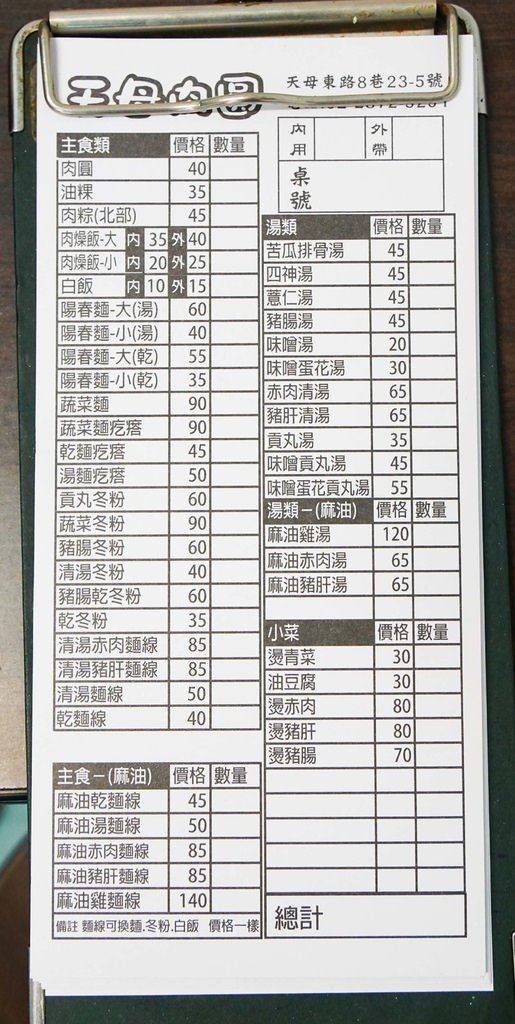 天母肉圓
天母東路8巷23-5號
內用 外帶
桌號
主食類 價格 數量
肉圓 40
油粿 35
肉粽(北部) 45
肉燥飯-大 內 35 外 40
肉燥飯-小 內 20 外 25
白飯 內 10 外 15
陽春麵-大(湯) 60
陽春麵-小(湯) 40
陽春麵-大(乾) 55
陽春麵-小(乾) 35
蔬菜麵 90
蔬菜麵疙瘩 90
乾麵疙瘩 45
湯麵疙瘩 50
貢丸冬粉 60
蔬菜冬粉 90
豬腸冬粉 60
清湯冬粉 40
豬腸乾冬粉 60
乾冬粉 35
清湯赤肉麵線 85
清湯豬肝麵線 85
清湯麵線 50
乾麵線 40
主食－(麻油) 價格 數量
麻油乾麵線 45
麻油湯麵線 50
麻油赤肉麵線 85
麻油豬肝麵線 85
麻油雞麵線 140
備註 麵線可換麵.冬粉.白飯 價格一樣
湯類 價格 數量
苦瓜排骨湯 45
四神湯 45
薏仁湯 45
豬腸湯 45
味噌湯 20
味噌蛋花湯 30
赤肉清湯 65
豬肝清湯 65
貢丸湯 35
味噌貢丸湯 45
味噌蛋花貢丸湯 55
湯類－(麻油) 價格 數量
麻油雞湯 120
麻油赤肉湯 65
麻油豬肝湯 65
小菜 價格 數量
燙青菜 30
油豆腐 30
燙赤肉 80
燙豬肝 80
燙豬腸 70
總計